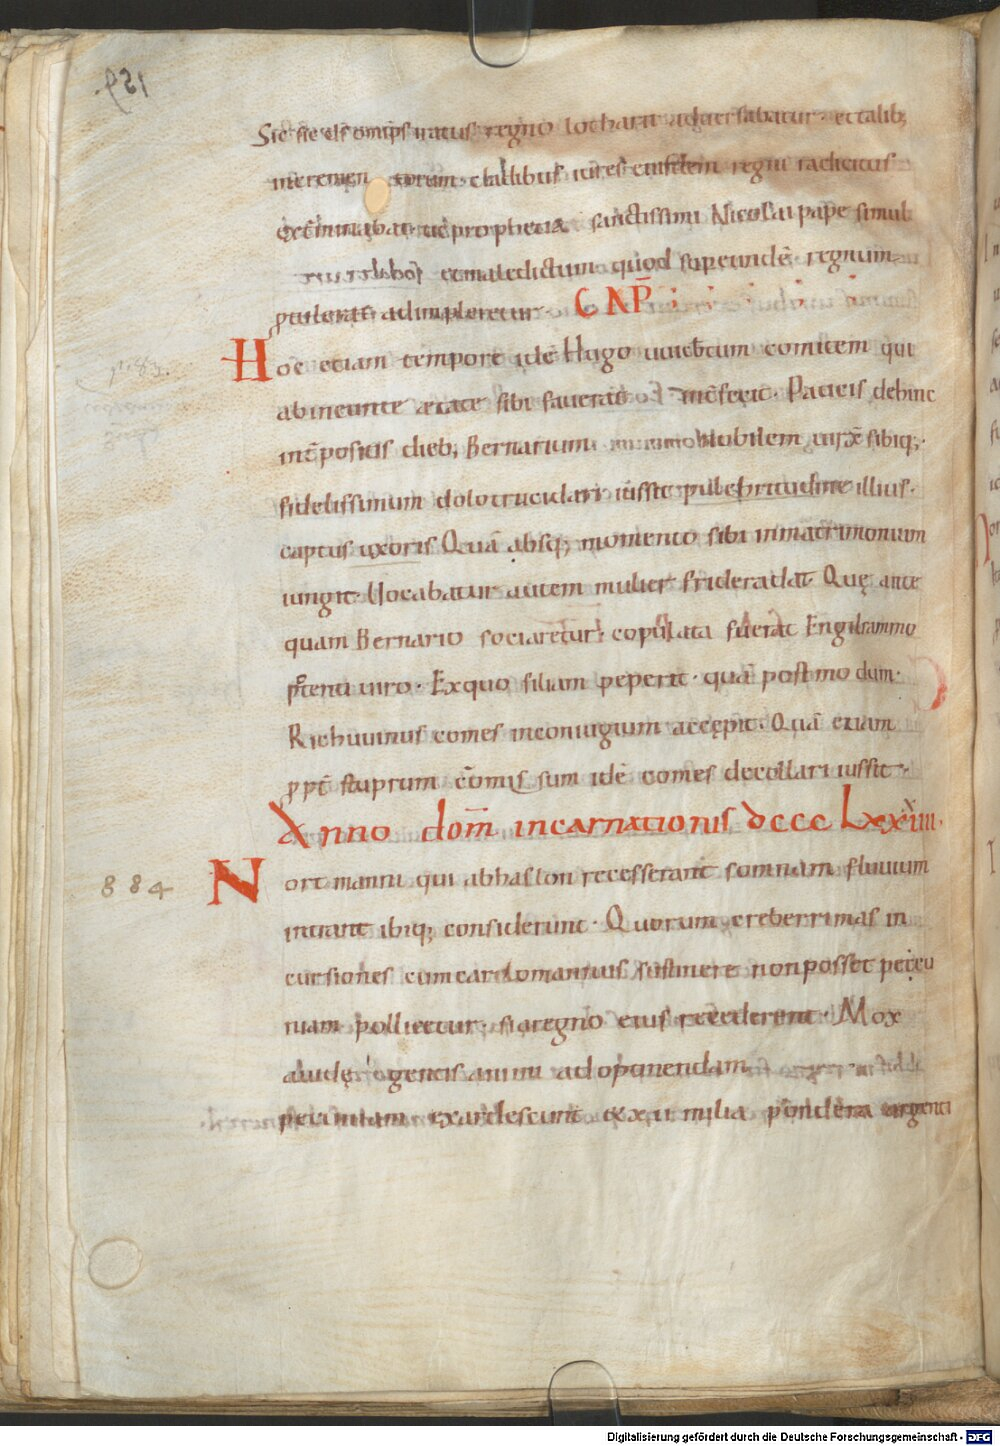 Sic sic els omps iratus regno lotharii aduersabatur et talib;
incremen torum cladibus uires eiusdem regni radicitus
exterminabat ut prophetia sanctissimi Nicolai pape simul
et maledictum quod sup eundē regnum
ptulerat adimpleretur. CAP̄
Hoc etiam tempore idē Hugo uuicbtum comitem qui
ab ineunte ætate sibi fauerat intfecit. Paucis dehinc
int positis dieb; Bernarium nobilem uirū sibiq;
fidelissimum dolo trucidari iussit pulchritudine illius.
captus uxoris Quā absq; momento sibi in matrimonium
iungit. Uocabatur autem mulier friderada. Quę ante
quam Bernario sociaretur. copulata fuerat Engilrammo
potenti uiro. Ex quo filiam peperit. quā postmodum.
Richuuinus comes in coniugium accępit. Quā etiam
ppt stuprum cōmissum idē comes decollari iussit.
Anno dom̄ incarnationis dccc Lxxxiiii.
884
Nortmanni qui ab haslon recesserant somnam fluuium
intrant ibiq; consederunt. Quorum creberrimas in
cursiones cum carlomannus sustinere non posset pecu
niam pollicetur. si a regno eius recederent. Mox
auidę gentis animi ad optinendam
pecuniam exardescunt & xii milia pondera argenti
Digitalisierung gefördert durch die Deutsche Forschungsgemeinschaft - DFG